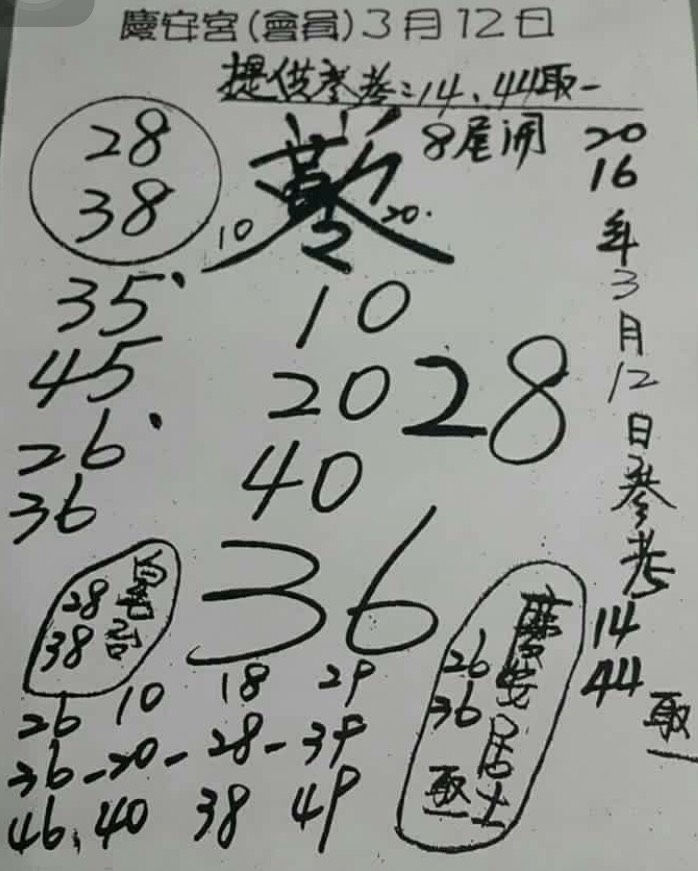 慶安宮(會員)3月12日
提供參考:14、44取一
8尾開
28
38
10
20.
35
45
26
36
10
20
40
28
36
28
38
26 10 18 29
36-20-28-39
46、40 38 49
慶安居士
26
36
取一
2016年3月12日參考
14
44
取一